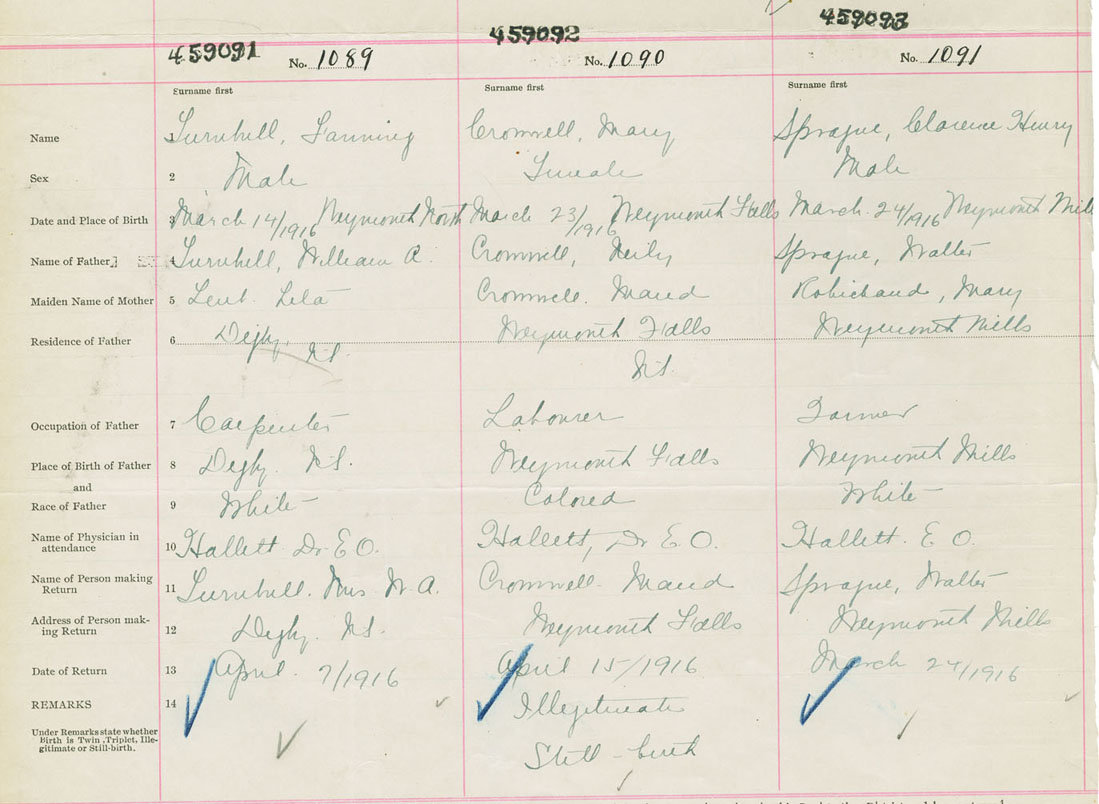 459091 459092 459093
No. 1089 No. 1090 No. 1091
Surname first Surname first Surname first
Name 1 Turnbull, Fanning Cromwell, Mary Sprague, Clarence Henry
Sex 2 Male Female Male
Date and Place of Birth 3 March 14/1916 Weymouth North March 23/1916 Weymouth Falls March 24/1916 Weymouth Mills
Name of Father 4 Turnbull, William A. Cromwell, Sprague, Walter
Maiden Name of Mother 5 Lent. Lila Cromwell. Maud Robichaud, Mary
Residence of Father 6 Digby, N.S. Weymouth Falls Weymouth Mills
N.S.
Occupation of Father 7 Carpenter Labourer Farmer
Place of Birth of Father 8 Digby. N.S. Weymouth Falls Weymouth Mills
and
Race of Father 9 White Colored White
Name of Physician in
attendance 10 Hallett. Dr. E O. Hallett, Dr. E. O. Hallett. E O.
Name of Person making
Return 11 Turnbull. Mrs. W. A. Cromwell. Maud Sprague, Walter
Address of Person mak-
ing Return 12 Digby. N.S. Weymouth Falls Weymouth Mills
Date of Return 13 April. 7/1916 April 15/1916 March 24/1916
REMARKS 14 Illegitimate
Under Remarks state whether
Birth is Twin, Triplet, Ille-
gitimate or Still-birth.
Still-birth